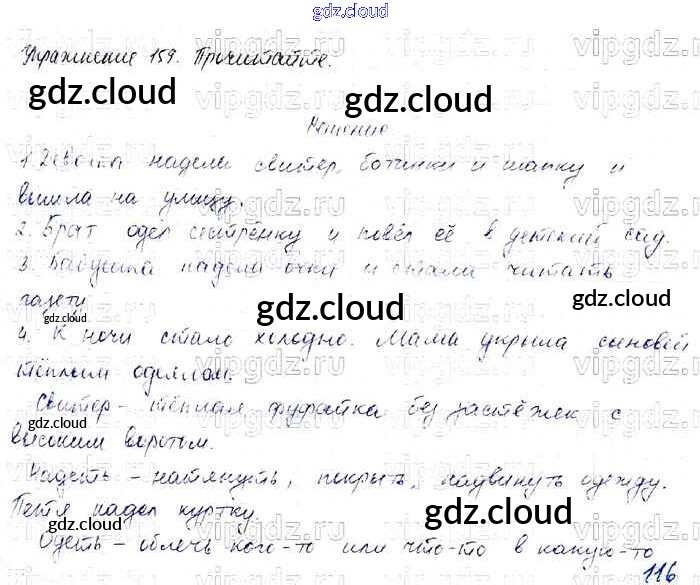 gdz.cloud
Упражнение 159. Прочитайте.
Решение
1. Девочка надела свитер, ботинки и шапку и
вышла на улицу.
2. Брат одел сестрёнку и повёл её в детский сад.
3. Бабушка надела очки и стала читать
газету.
4. К ночи стало холодно. Мама укрыла сыновей
тёплым одеялом.
Свитер - тёплая фуфайка без застёжек с
высоким воротом.
Надеть - натянуть, покрыть, надвинуть одежду.
Петя надел куртку.
Одеть - облечь кого-то или что-то в какую-то
116